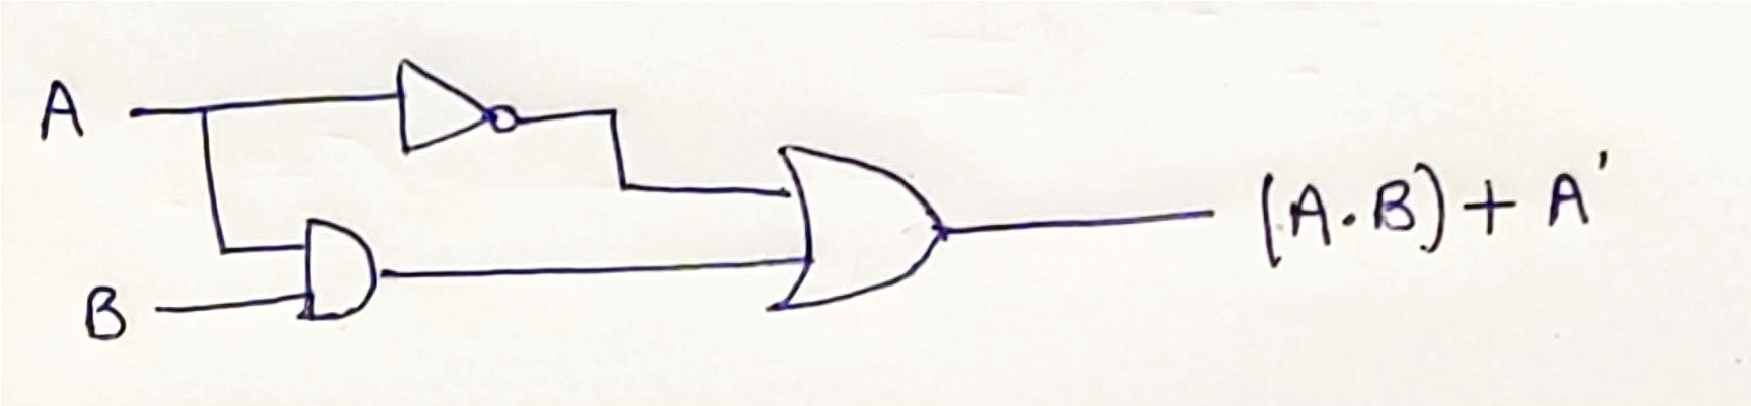 A
B
(A.B) + A'